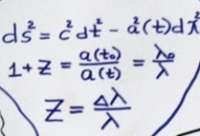 ds² = c²dt² - a²(t)dx²
1+z = a(t₀)/a(t) = λ₀/λ
z = Δλ/λ